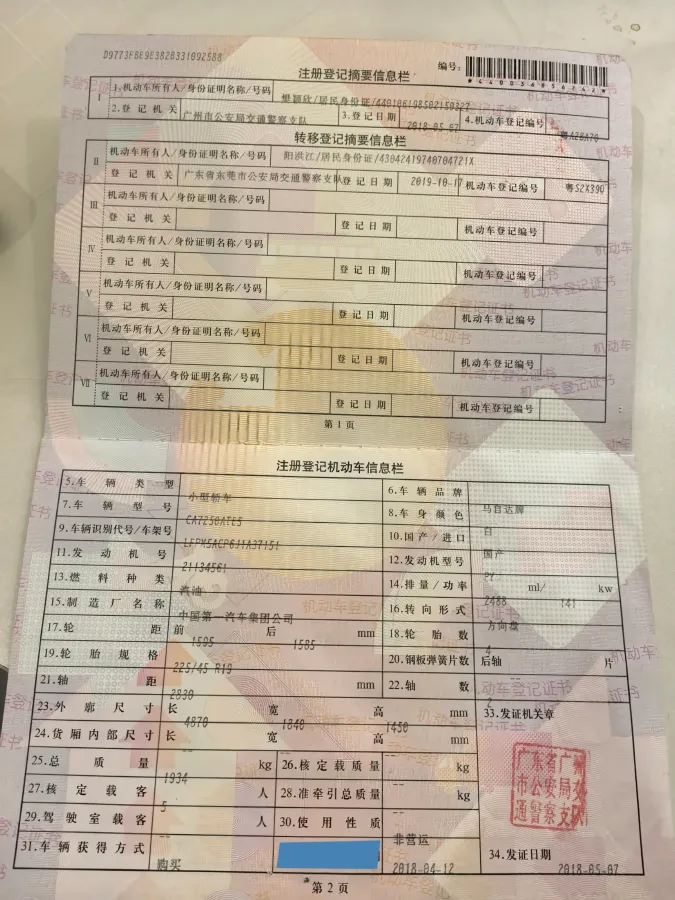 D9773FBE9E382B331692588
编号:
*440034856242*
注册登记摘要信息栏
I 1.机动车所有人/身份证明名称/号码 樊颖欣/居民身份证/440106198502150327
2.登记机关 广州市公安局交通警察支队 3.登记日期 2018-05-07 4.机动车登记编号
转移登记摘要信息栏
II 机动车所有人/身份证明名称/号码 阳洪江/居民身份证/43042419740704721X
登记机关 广东省东莞市公安局交通警察支队 登记日期 2019-10-17 机动车登记编号 粤S2X390
III 机动车所有人/身份证明名称/号码
登记机关 登记日期 机动车登记编号
IV 机动车所有人/身份证明名称/号码
登记机关 登记日期 机动车登记编号
V 机动车所有人/身份证明名称/号码
登记机关 登记日期 机动车登记编号
VI 机动车所有人/身份证明名称/号码
登记机关 登记日期 机动车登记编号
VII 机动车所有人/身份证明名称/号码
登记机关 登记日期 机动车登记编号
第1页
注册登记机动车信息栏
5.车辆类型 小型轿车 6.车辆品牌 马自达牌
7.车辆型号 CA7250ATE5 8.车身颜色 白
9.车辆识别代号/车架号 LFPM5ACP6J1A37151 10.国产/进口 国产
11.发动机号 21134561 12.发动机型号 PY
13.燃料种类 汽油 14.排量/功率 2488 ml/ 141 kw
15.制造厂名称 中国第一汽车集团公司 16.转向形式 方向盘
17.轮距 前 1595 后 1585 mm 18.轮胎数 4
19.轮胎规格 225/45 R19 20.钢板弹簧片数 后轴 -- 片
21.轴距 2830 mm 22.轴数 2
23.外廓尺寸 长 4870 宽 1840 高 1450 mm 33.发证机关章
24.货厢内部尺寸 长 -- 宽 -- 高 -- mm
25.总质量 1934 kg 26.核定载质量 -- kg
27.核定载客 5 人 28.准牵引总质量 -- kg
29.驾驶室载客 -- 人 30.使用性质 非营运
31.车辆获得方式 购买 2018-04-12 34.发证日期 2018-05-07
广东省广州
市公安局交
通警察支队
第2页